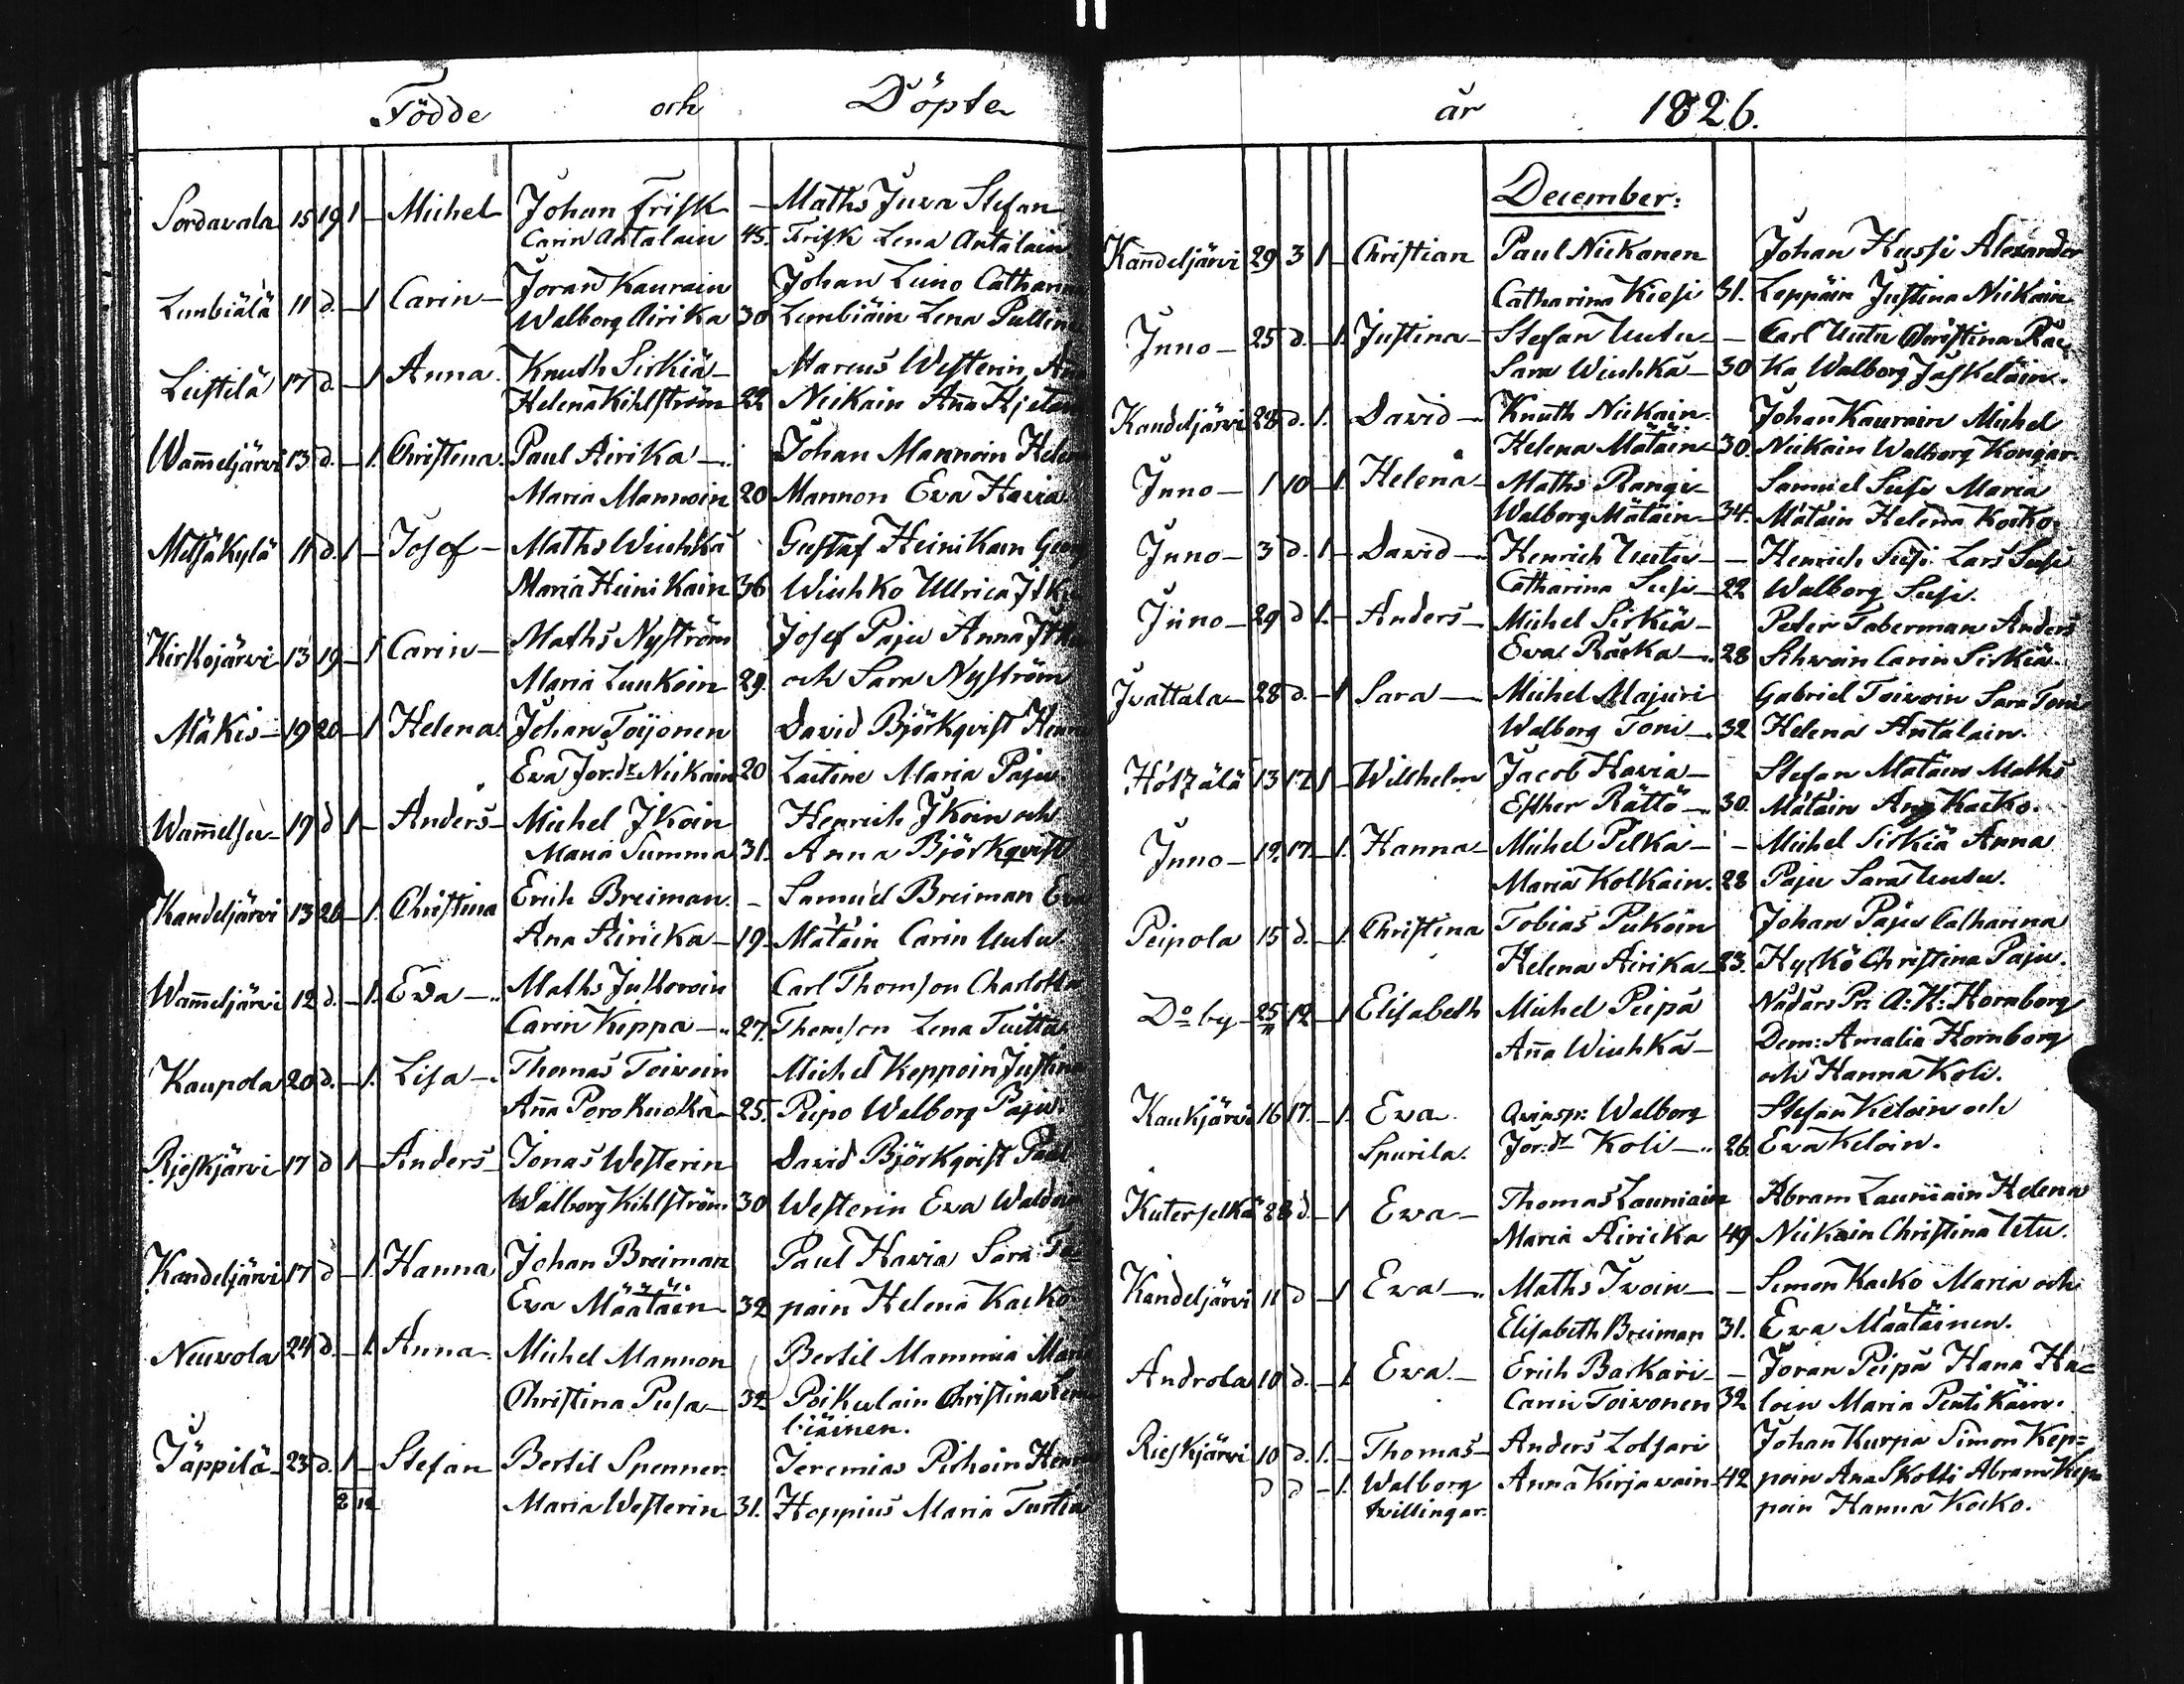 Födde och Döpte
Sordavala 15 19 1 - Michel Johan Frisk - Maths Juva Stefan
Carin Antalain 45. Frisk Lena Antalain
Lembiälä 11 d. - 1 Carin - Joran Kaurain Johan Luno Catharina
Walborg Airika 30 Lembiäin Lena Pullin
Leistilä 17 d. - 1. Anna. Knuth Sirkiä - Marcus Westerin,
Helena Kihlström 22 Niikain Aña
Wam̄eljärvi 13 d. - 1. Christina. Paul Airika - Johan Mannoin
Maria Mannoin 20 Mannon Eva Havia
Metsäkylä 11 d. 1 - Josef - Maths Wiuhka Gustaf Heinikain
Maria Heinikain 36 Wiuhko Ullrica
Kirkojärvi 13 19 - 1 Carin - Maths Nyström Josef Paju Anna
Maria Luukoin 29. och Sara Nyström
Mäkis - 19 20 - 1. Helena Johan Toijonen David Björkqvist
Eva Jor:dr Niikain 20 Laitine Maria Paju
Wam̄elsu - 19 d 1 - Anders - Michel Ikoin Henrich Ikoin och
Maria Summa 31. Anna Björkqvist
Kandeljärvi 13 26 - 1. Christina Erich Breiman. - Samuel Breiman Eva
Ana Airicka - 19. Mätäin Carin Uutu
Wam̄eljärvi 12 d. - 1. Eva - Maths Jukoroin Carl Thomson Charlotta
Carin Kuppa - 27. Thomson Lena Tuitta
Kaupola 20 d. - 1. Lisa - Thomas Toivoin Michel Keppoin Justina
Aña Porokuoka - 25. Peipo Walborg Paju.
Rieskjärvi 17 d 1 - Anders - Jonas Westerin David Björkqvist Paul
Walborg Kihlström 30 Westerin Eva
Kandeljärvi 17 d - 1. Hanna Johan Breiman Paul Havia Sara
Eva Määtäin - 32 pain Helena Kacko
Neuvola 24 d. - 1. Anna. Michel Mannon Bertil Mammia
Christina Pusa - 32 Poikulain Christina Lem
biäinen.
Jäppilä - 23 d. 1 - Stefan Bertil Spenner Jeremias Pihoin
8 12 Maria Westerin 31. Hoppius Maria Turtia
år 1826.
December:
Kan̄deljärvi 29 3 1 - Christian Paul Niikanen Johan Hussi Alexander
Catharina Kiesi 31. Leppäin Justina Niikain
Inno - 25 d. - 1. Justina - Stefan Uutu - - Carl Uutu Christina Räc
Sara Wiuhka - 30 ka Walborg Jäskeläin.
Kandeljärvi 28 d. 1. David - Knuth Niikain. Johan Kaurain Michel
Helena Mätäin - 30. Niikain Walborg Kongar
Inno - 1 10 - 1. Helena - Maths Rangi - Samuel Susi Maria
Walborg Mätäin - 34. Mätäin Helena Kocko.
Inno - 3 d. 1 - David - Henrich Uutu - - Henrich Susi Lars Susi
Catharina Susi - 22 Walborg Susi.
Inno - 29 d 1. - Anders - Michel Sirkiä - Peter Taberman Anders
Eva Räcka - 28 Sihvoin Carin Sirkiä.
Ivattala - 28 d. - 1 Sara - Michel Majuri Gabriel Toivoin Sara Toni
Walborg Toni - 32 Helena Antalain.
Hötzälä 13 12 1 - Willhelm Jacob Havia - Stefan Mätäin Maths
Esther Rättö - 30. Mätäin Kacko.
Inno - 19. 17. - 1. Hanna - Michel Pelka - - Michel Sirkiä Anna
Maria Kolkain. 28 Paju Sara Uutu.
Peipola 15 d. - 1. Christina Tobias Pukoin Johan Paju Catharina
Helena Airika - 23. Hyckö Christina Paju.
Do by - 25/11 12 - 1 Elisabeth Michel Peipa Nådårs Pr: A: H: Hornborg
Aña Wiuhka - Dem: Amalia Hornborg
och Hanna Koli.
Kaukjärvi 16 17. - 1. Eva. Qvinsp: Walborg Stefan Keloin och
Spurila. Jor:dr Koli - 26. Eva Keloin.
Kuterselkä 28 d. - 1 Eva - Thomas Launiain Abram Launiain Helena
Maria Airicka 49 Niikain Christina Utu.
Kandeljärvi 11 d - 1 Eva - Maths Ivoin - - Simon Kacko Maria och
Elisabeth Breiman 31. Eva Määtäinen.
Androla 10 d. - 1 Eva. - Erich Backari - - Joran Peipa Hana Ha=
Carin Toivonen 32 loin Maria Pentikäin.
Rieskjärvi 10 d. 1. - Thomas - Anders Lolsari Johan Kurpa Simon Kep=
d d - 1. Walborg Anna Kirjavain 42 poin Ana Skotti Abram Kep
tvillingar. poin Hanna Kocko.